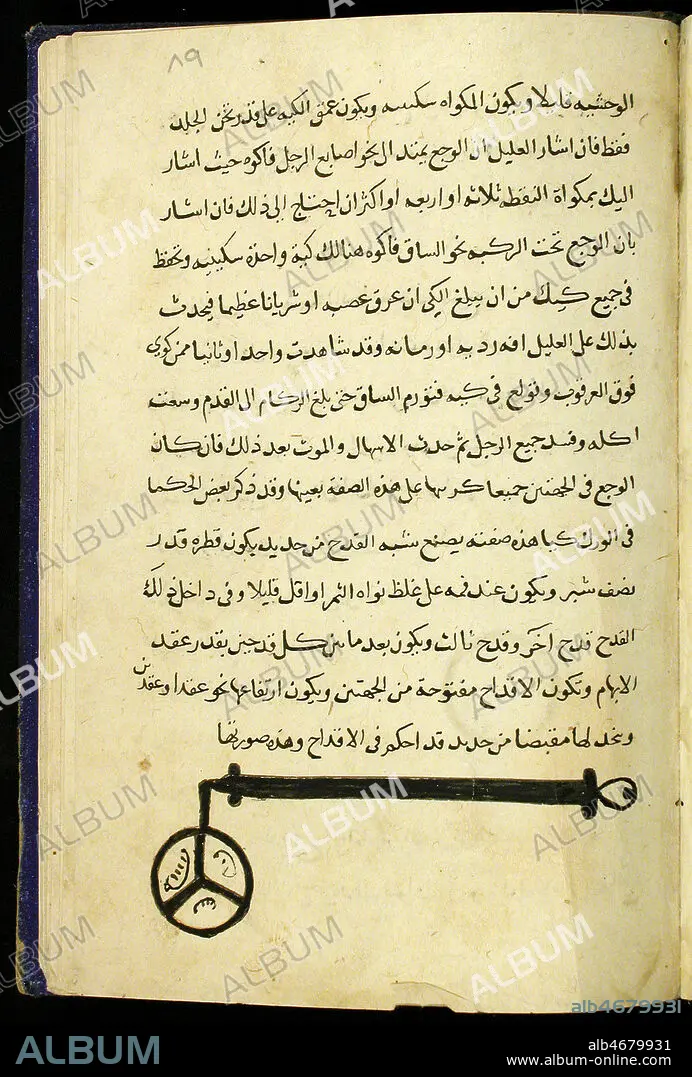 ٨٩
الوحشيه قليلا ويكون المكواه سكينيه ويكون عمق الكيه على قدر ثخن الجلد
فقط فان اشار العليل ان الوجع يمتد الى نحو اصابع الرجل فاكوه حيث اشار
اليك بمكواة النقطه ثلاثه او اربعه او اكثر ان احتاج الى ذلك فان اشار
بان الوجع تحت الركبه نحو الساق فاكوه هنالك كية واحدة سكينيه وتحفظ
فى جميع كيك من ان يبلغ الكى ان عرق عصبه او شريانا عظيما فيحدث
بذلك على العليل افه رديه او زمانه وقد شاهدت واحد او ثانيا ممن كوى
فوق العرقوب و فى كيه فتورم الساق حتى بلغ الى القدم
اكله وفسد جميع الرجل ثم حدث الاسهال والموت بعد ذلك فان كان
الوجع فى الجهتين جميعا على هذه الصفة بعينها وقد ذكر بعض الحكما
فى الورك كيا هذه صفته يصنع شبه القدح من حديد يكون قطره قدر
نصف شبر ويكون عند فمه على غلظ نواه التمر او اقل قليلا وفى داخل ذلك
القدح قدح اخر وقدح ثالث ويكون بعد ما بين كل قدحين بقدر عقد
الابهام وتكون الاقداح مفتوحة من الجهتين ويكون ارتفاعها نحو عقدا وعقدين
ويتخذ لها مقبضا من حديد قد احكم فى الاقداح وهذه صورتها
ALBUM
alb4679931
ALBUM
alb4679931
www.album-online.com